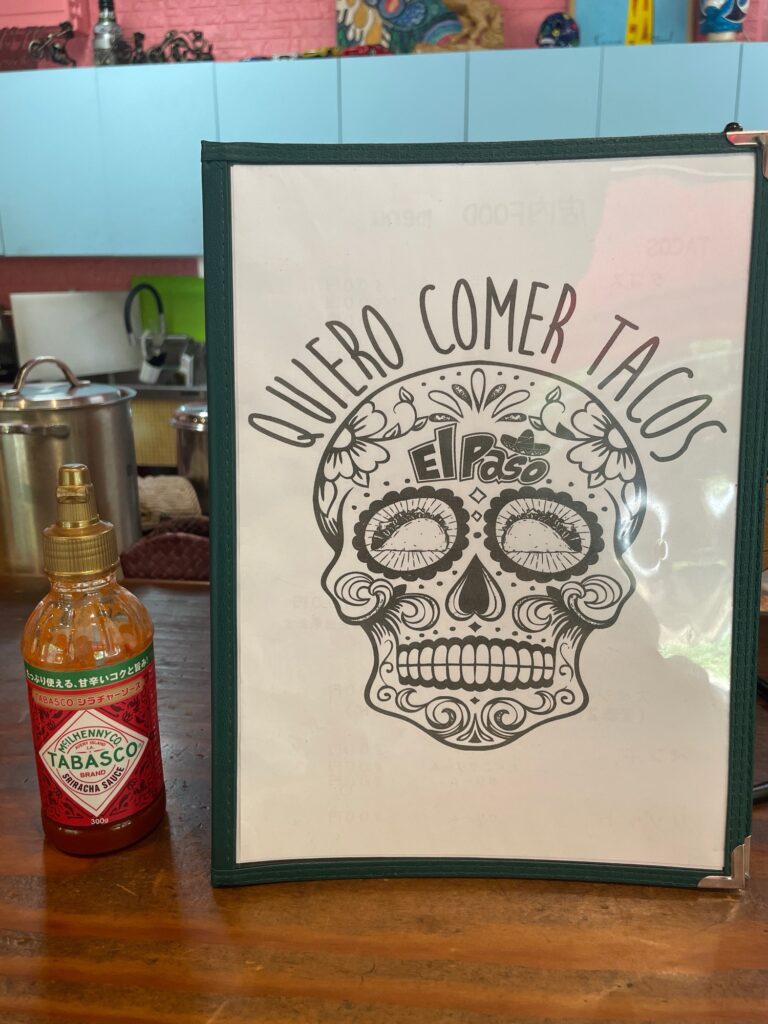 QUIERO COMER TACOS
El Paso
たっぷり使える、甘辛いコクと旨み!
TABASCO シラチャーソース
McILHENNY CO.
AVERY ISLAND
LA.
TABASCO
BRAND
SRIRACHA SAUCE
300g
店内FOOD menu
TACOS
タコス